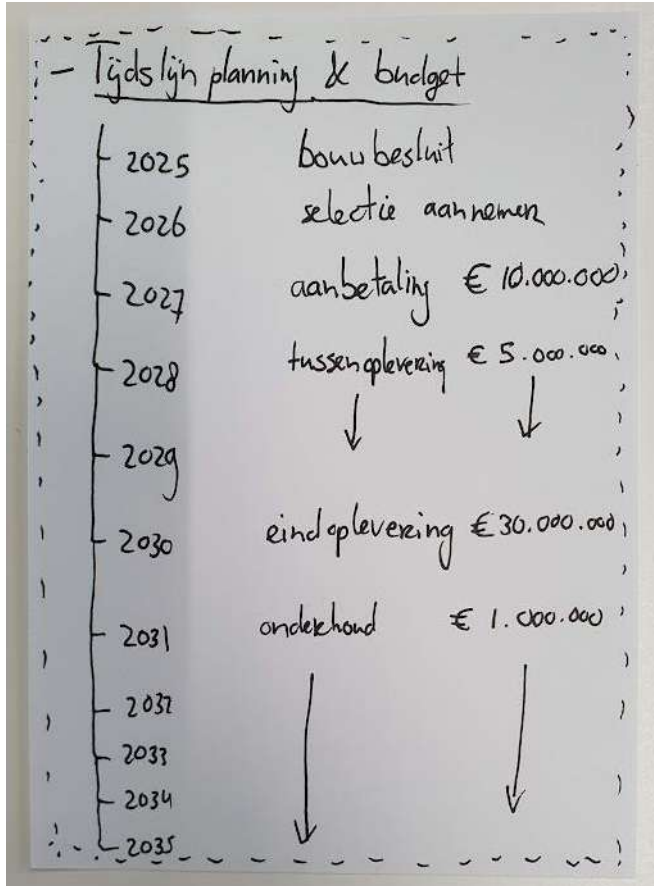 - Tijdslijn planning & budget
2025 bouwbesluit
2026 selectie aannemer
2027 aanbetaling € 10.000.000
2028 tussenoplevering € 5.000.000
2029
2030 eindoplevering € 30.000.000
2031 onderhoud € 1.000.000
2032
2033
2034
2035